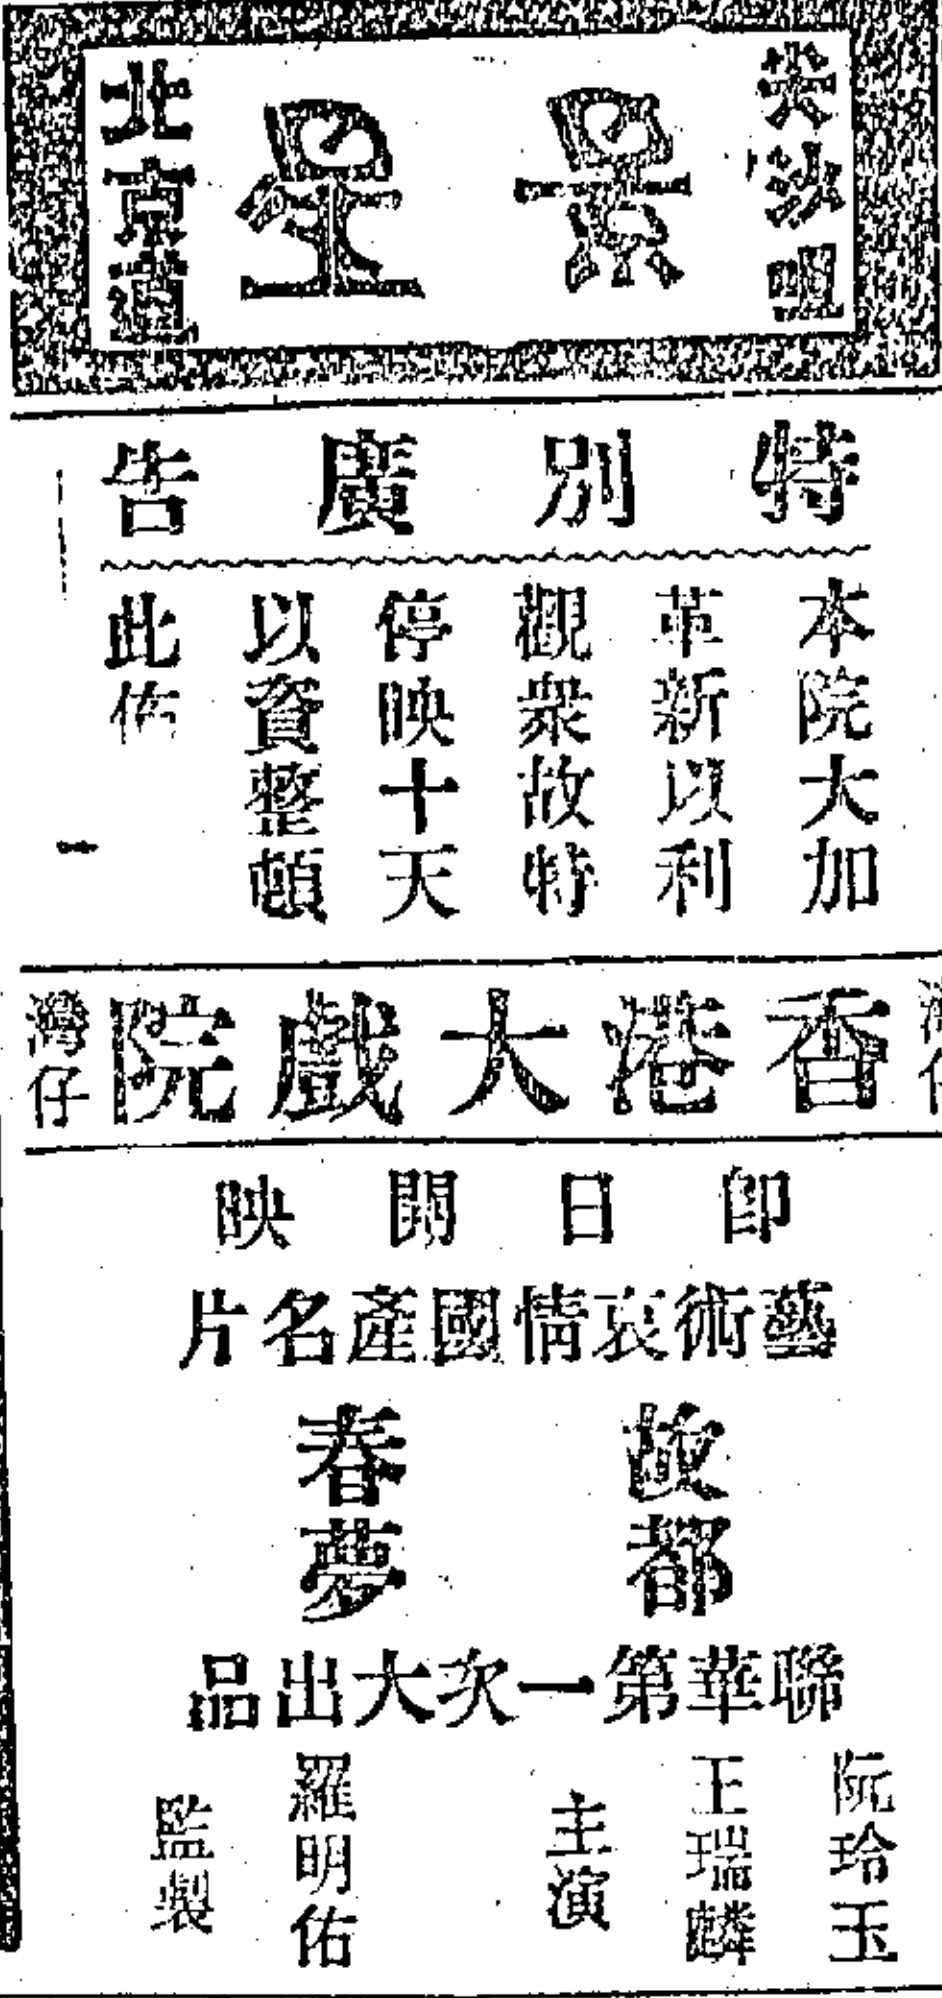 尖沙咀
景星
北京道
特別廣告
本院大加
革新以利
觀衆故特
停映十天
以資整頓
此佈
灣仔
香港大戲院
灣仔
即日開映
藝術哀情國產名片
故都
春夢
聯華第一次大出品
阮玲玉
王瑞麟
主演
羅明佑
監製